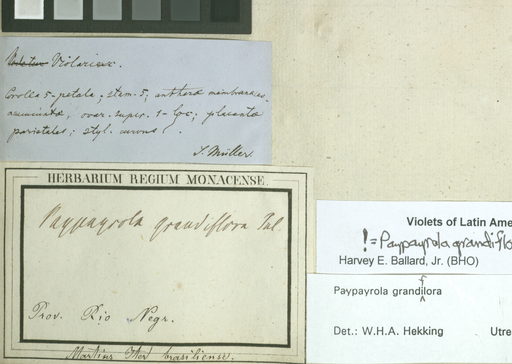 Violarieae.
Corolla 5-petala; stam. 5; antherae membranac.
acuminatae, ovar. super. 1-loc; placentae
parietales; styl. curvus
J. Müller
HERBARIUM REGIUM MONACENSE.
Paypayrola grandiflora Tul.
Prov. Rio Negr.
Martius Iter brasiliense.
Violets of Latin Ame
!=Paypayrola grandiflo
Harvey E. Ballard, Jr. (BHO)
Paypayrola grandflora
Det.: W.H.A. Hekking Utre